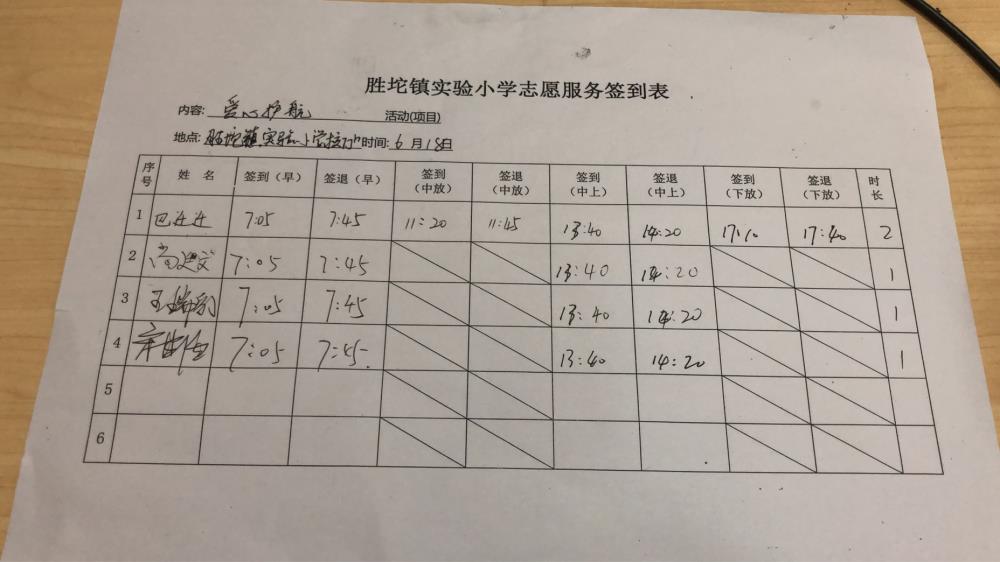 胜坨镇实验小学志愿服务签到表
内容: 爱心护航 活动(项目)
地点: 胜坨镇实验小学校门口 时间: 6月18日
序号 姓名 签到(早) 签退(早) 签到(中放) 签退(中放) 签到(中上) 签退(中上) 签到(下放) 签退(下放) 时长
1 巴进进 7:05 7:45 11:20 11:45 13:40 14:20 17:10 17:40 2
2 7:05 7:45 13:40 14:20 1
3 7:05 7:45 13:40 14:20 1
4 7:05 7:45 13:40 14:20 1
5
6